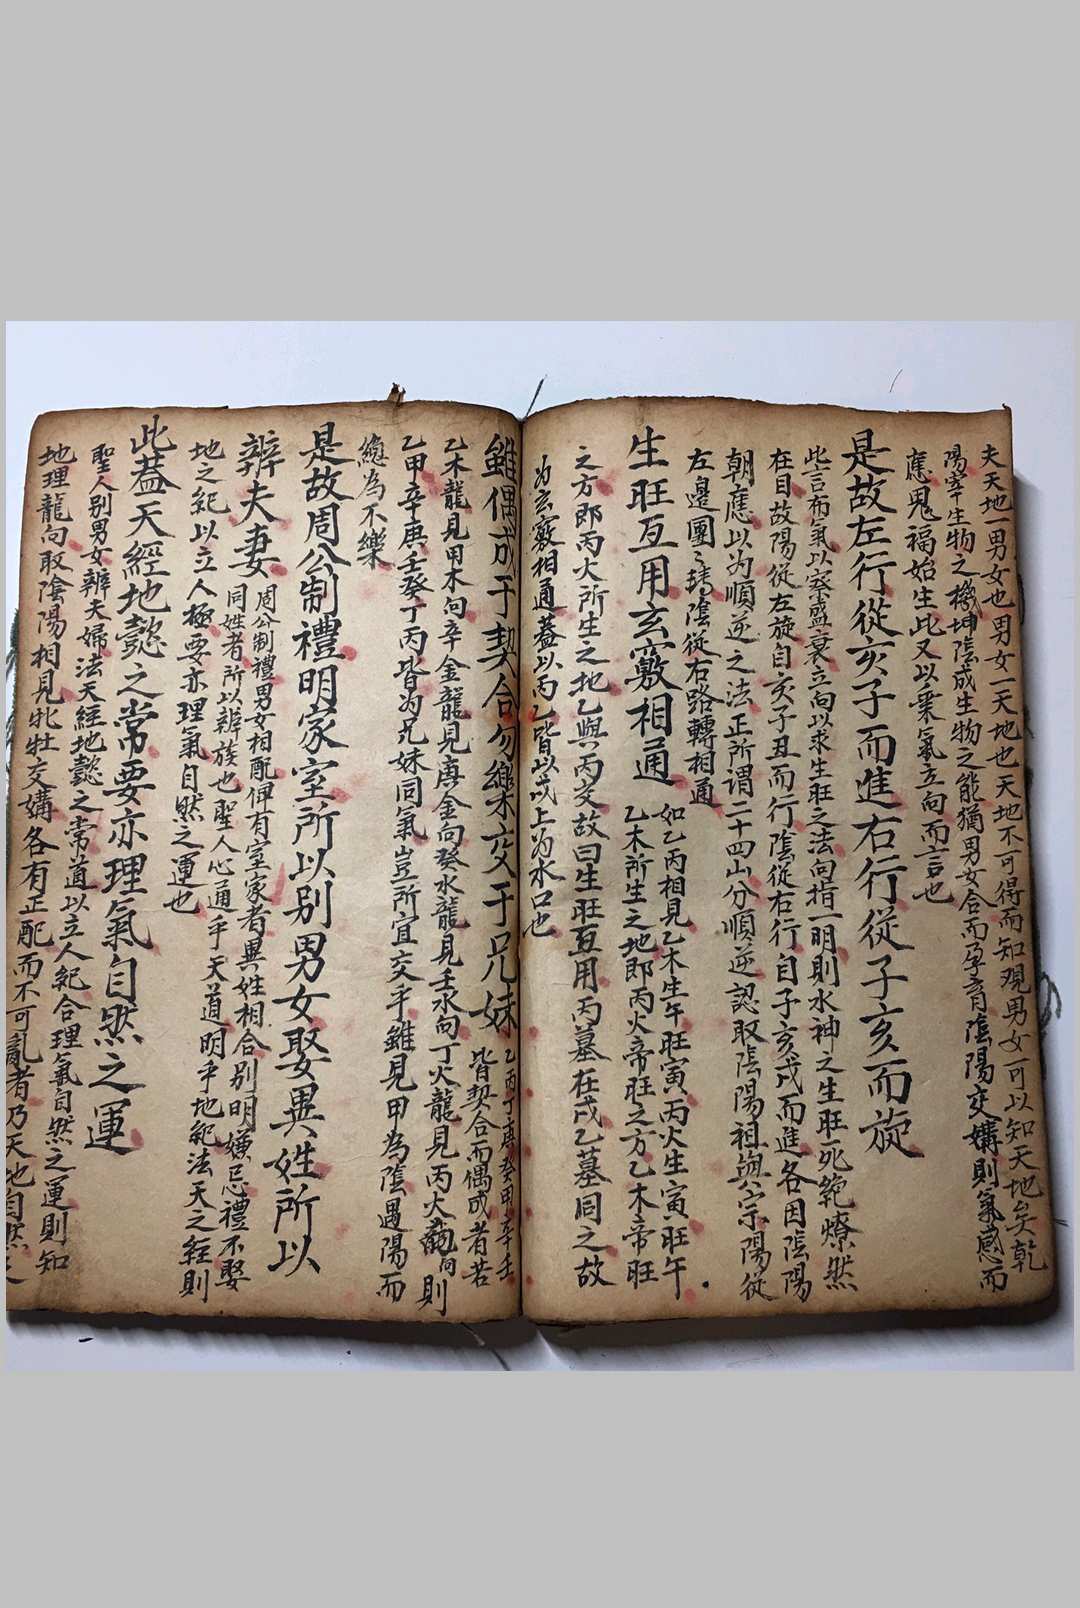 夫天地一男女也男女一天地也天地不可得而知观男女可以知天地矣乾
陽宰生物之機坤陰成生物之能猶男女合而孕育陰陽交媾則氣感而
應鬼福始生此又以乗氣立向而言也
是故左行從亥子而進右行從子亥而旋
此言布氣以察盛衰立向以求生旺之法向指一明則水神之生旺死絶燎然
在目故陽從左旋自亥子丑而行陰從右行自子亥戌而進各因陰陽
朝應以为順逆之法正所谓二十四山分順逆認取陰陽祖與宗陽從
左邉團〻轉陰從右路轉相通
生旺互用玄竅相通
如乙丙相見乙木生午旺寅丙火生寅旺午
乙木所生之地即丙火帝旺之方乙木帝旺
之方即丙火所生之地乙與丙交故曰生旺互用丙墓在戌乙墓同之故
为玄竅相通蓋以丙乙皆以戌上为水口也
雖偶成于契合勿樂交于兄妹
乙丙丁庚癸甲辛壬
皆契合而偶成者若
乙木龍見甲木向辛金龍見庚金向癸水龍見壬水向丁火龍見丙火龍向則
乙甲辛庚壬癸丁丙皆为兄妹同氣豈所宜交乎雖見甲為陰遇陽而
總為不樂
是故周公制禮明家室所以别男女娶異姓所以
辨夫妻
周公制禮男女相配俾有室家者異姓相合别明嫌忌禮不娶
同姓者所以辨族也聖人心通乎天道明乎地紀法天之經則
地之紀以立人極要亦理氣自然之運也
此蓋天經地懿之常要亦理氣自然之運
聖人别男女辨夫婦法天經地懿之常道以立人紀合理氣自然之運則知
地理龍向取陰陽相見牝牡交媾各有正配而不可亂者乃天地自然之